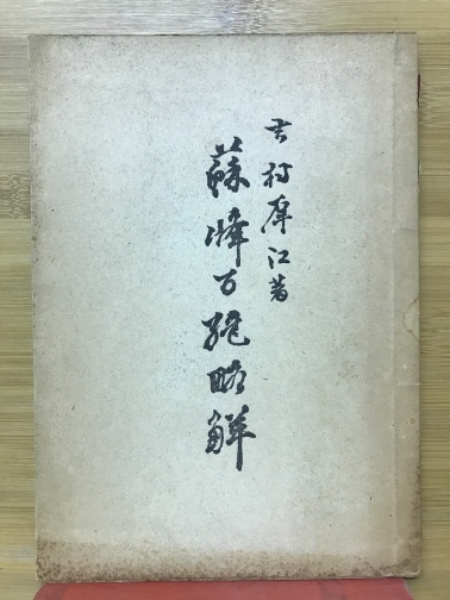 吉村江著
蘇峰百絶略解